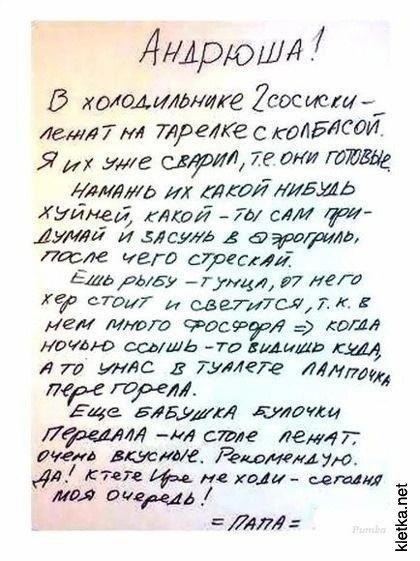 Андрюша!
В холодильнике 2 сосиски –
лежат на тарелке с колбасой.
Я их уже сварил, т.е. они готовые.
Намажь их какой нибудь
хуйней, какой – ты сам при-
думай и засунь в аэрогриль,
после чего стрескай.
Ешь рыбу – тунца, от него
хер стоит и светится, т.к. в
нем много фосфора => когда
ночью ссышь – то видишь куда,
а то у нас в туалете лампочка
перегорела.
Еще бабушка булочки
передала – на столе лежат,
очень вкусные. Рекомендую.
Да! К тете Ире не ходи – сегодня
моя очередь!
= ПАПА =
Pumba
kletka.net